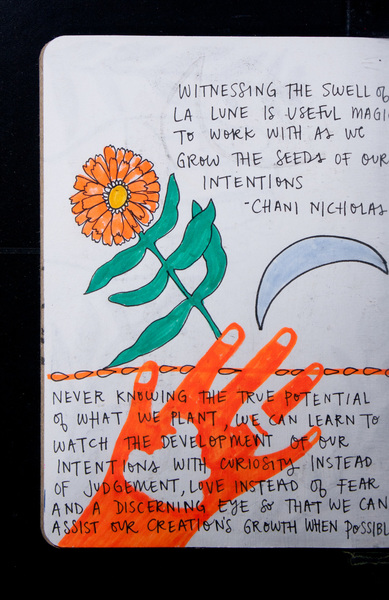 WITNESSING THE SWELL of
LA LUNE IS USEFUL MAGI
TO WORK WITH AS WE
GROW THE SEEDS OF OUR
INTENTIONS
-CHANI NICHOLAS
NEVER KNOWING THE TRUE POTENTIAL
of WHAT WE PLANT, WE CAN LEARN TO
WATCH THE DEVELOPMENT OF OUR
INTENTIONS WITH CURIOSITY INSTEAD
OF JUDGEMENT, LOVE INSTEAD OF FEAR
AND A DISCERNING EYE SO THAT WE CAN
ASSIST OUR CREATION'S GROWTH WHEN POSSIBL